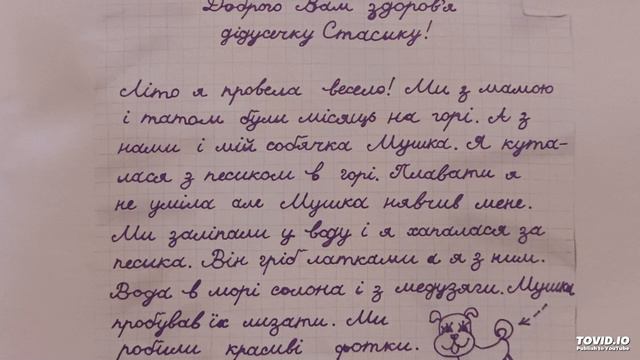 Доброго Вам здоров'я
дідусечку Стасику!
Літо я провела весело! Ми з мамою
і татом були місяць на горі. А з
нами і мій собячка Мушка. Я купа-
лася з песиком в горі. Плавати я
не уміла але Мушка нявчив мене.
Ми заліпали у воду і я хапалася за
песика. Він гріб латками а я з ним.
Вода в морі солона і з медузяги. Мушка
пробував їх лизати. Ми
робили красиві фотки.
TOVID.IO
Publish to YouTube